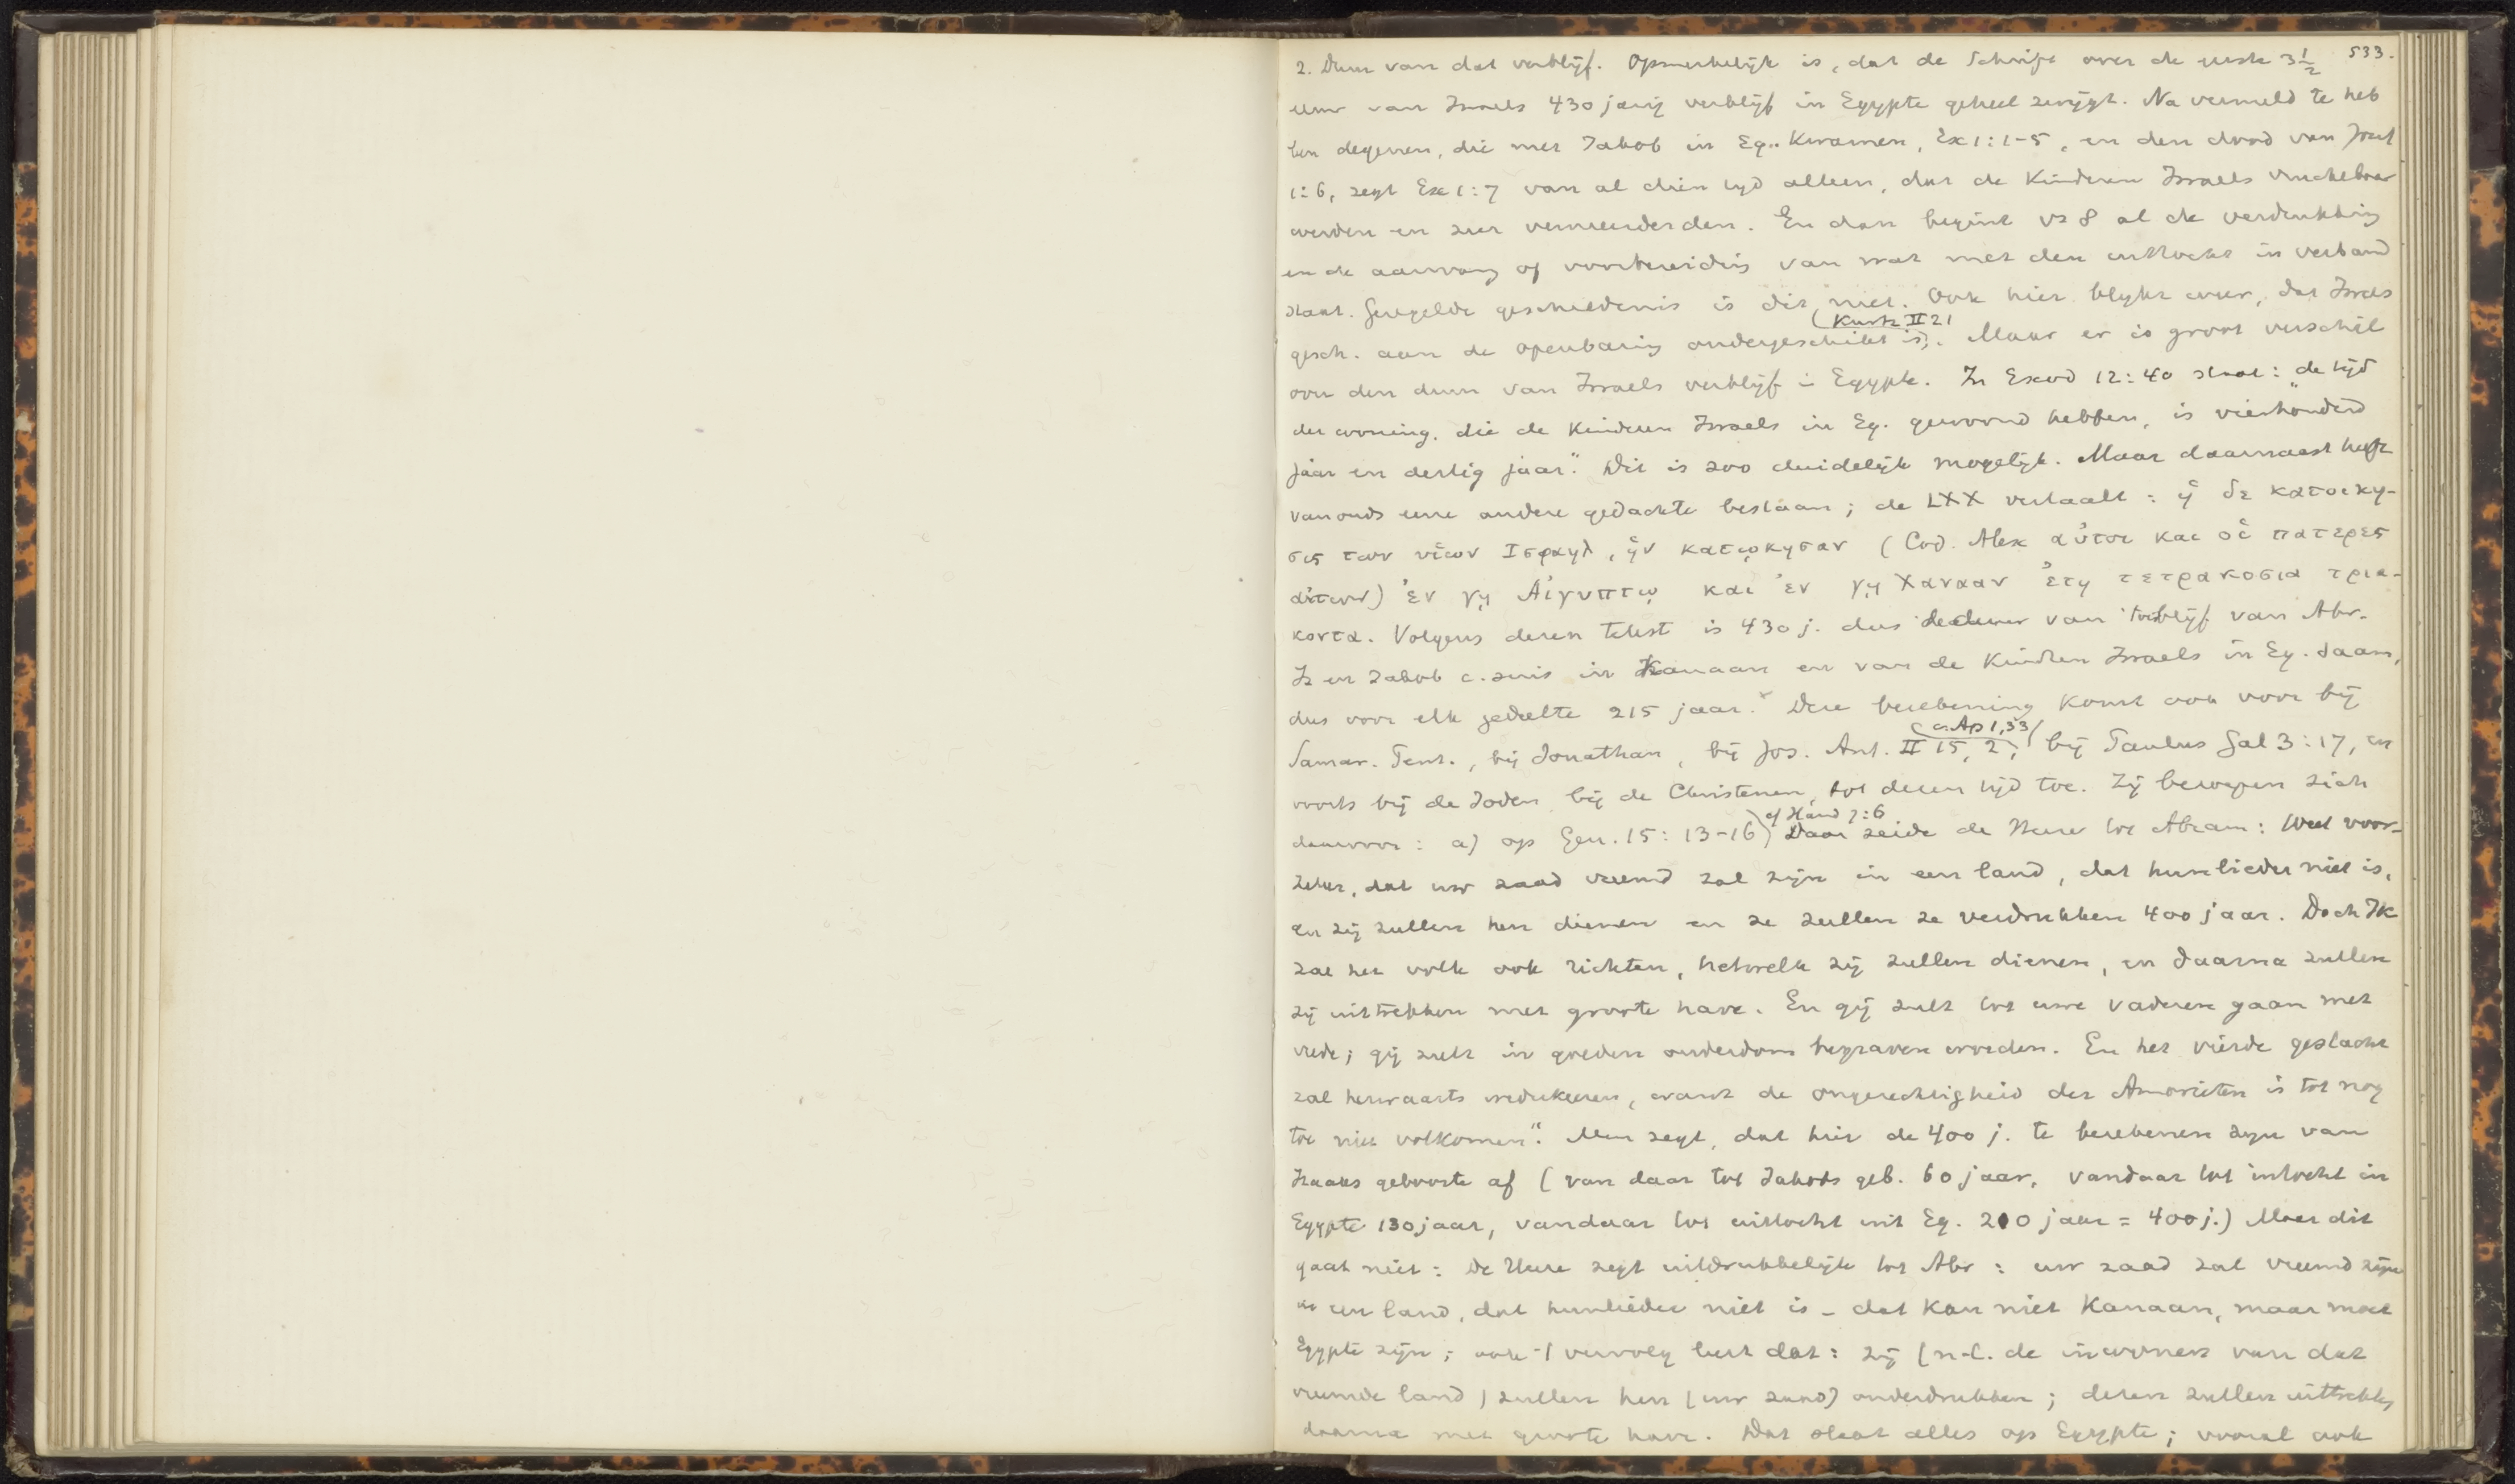 533.
2. Duur van dat verblijf. Opmerkelijk is, dat de Schrift over de eerste 3½
eeuw van Israels 430 jarig verblijf in Egypte geheel zwijgt. Na vermeld te heb
ben degenen, die met Jakob in Eg. kwamen, Ex 1:1-5, en den dood van Jozef
1:6, zegt Ex 1:7 van al dien tyd alleen, dat de Kinderen Israels vruchtbaar
werden en zeer vermeerderden. En dan begint vs 8 al de verdrukking
en de aanvang of voorbereiding van wat met den uittocht in verband
staat. Geregelde geschiedenis is dit niet. Ook hier blykt weer, dat Israels
gesch. aan de openbaring ondergeschikt is, (Kurtz II 21). Maar er is groot verschil
over den duur van Israels verblijf in Egypte. In Exod 12:40 staat: „de tijd
der woning, die de Kinderen Israels in Eg. gewoond hebben, is vierhonderd
jaar en dertig jaar". Dit is zoo duidelijk mogelijk. Maar daarnaast heeft
van ouds eene andere gedachte bestaan; de LXX vertaalt: ἡ δε κατοικη-
σις των υἱων Ισραηλ, ἡν κατῳκησαν (Cod. Alex αὐτοι και οἱ πατερες
αὐτων) ἐν γῃ Αἰγυπτῳ και ἐν γῃ Χανααν ἐτη τετρακοσια τρια-
κοντα. Volgens dezen tekst is 430 j. dus de duur van 't verblijf van Abr.
Iz en Jakob c. suis in Kanaan en van de Kinderen Israels in Eg. saam,
dus voor elk gedeelte 215 jaar. Deze berekening komt ook voor bij
Samar. Pent., bij Jonathan, bij Jos. Ant. II 15, 2, (c. Ap 1,33) bij Paulus Gal 3:17, en
voorts bij de Joden bij de Christenen, tot dezen tijd toe. Zij beroepen zich
daarvoor: a) op Gen. 15:13-16) cf Hand 7:6 Daar zeide de Heere tot Abram: Weet voor-
zeker, dat uw zaad vreemd zal zijn in een land, dat hunlieder niet is,
en zij zullen hen dienen en ze zullen ze verdrukken 400 jaar. Doch Ik
zal het volk ook richten, hetwelk zij zullen dienen, en daarna zullen
zij uittrekken met groote have. En gij zult tot uwe vaderen gaan met
vrede; gij zult in goeden ouderdom begraven worden. En het vierde geslacht
zal herwaarts wederkeeren, want de ongerechtigheid der Amorieten is tot nog
toe niet volkomen". Men zegt, dat hier de 400 j. te berekenen zyn van
Izaaks geboorte af (van daar tot Jakobs geb. 60 jaar, vandaar tot intocht in
Egypte 130 jaar, vandaar tot uittocht uit Eg. 210 jaar = 400 j.) Maar dit
gaat niet: de Heere zegt uitdrukkelijk tot Abr: uw zaad zal vreemd zijn
in een land, dat hunlieder niet is – dat kan niet Kanaan, maar moet
Egypte zijn; ook 't vervolg leert dat: zij (n.l. de inwoners van dat
vreemde land) zullen hen (uw zaad) onderdrukken; dezen zullen uittrekken
daarna met groote have. Dat slaat alles op Egypte; vooral ook